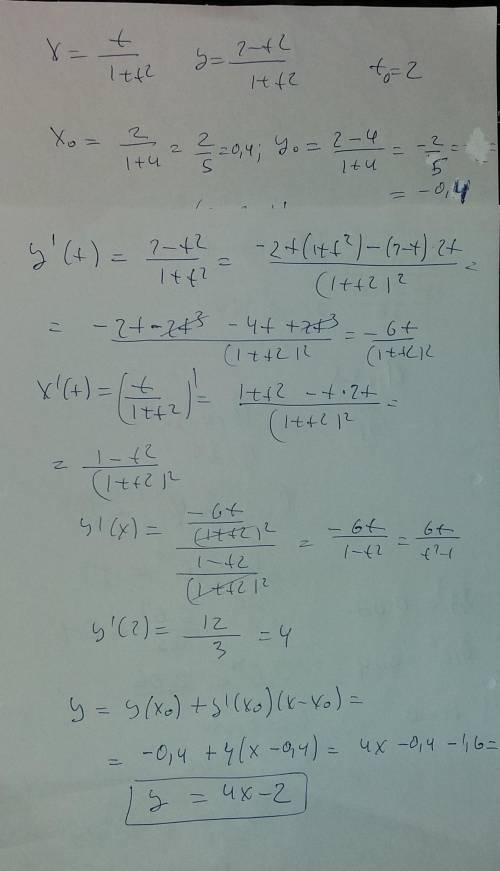 x = t/(1+t²) y = (2-t²)/(1+t²) t₀=2
x₀ = 2/(1+4) = 2/5 = 0,4; y₀ = (2-4)/(1+4) = -2/5 =
= -0,4
y'(t) = (2-t²)/(1+t²) = (-2t(1+t²)-(2-t)·2t)/(1+t²)² =
= (-2t-2t³ -4t+2t³)/(1+t²)² = -6t/(1+t²)²
x'(t) = (t/(1+t²))' = (1+t² - t·2t)/(1+t²)² =
= (1-t²)/(1+t²)²
y'(x) = (-6t/(1+t²)²)/((1-t²)/(1+t²)²) = -6t/(1-t²) = 6t/(t²-1)
y'(2) = 12/3 = 4
y = y(x₀) + y'(x₀)(x-x₀) =
= -0,4 + 4(x-0,4) = 4x -0,4 -1,6=
y = 4x-2